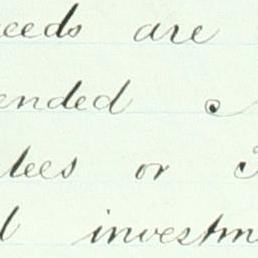 eeds are
ended
tees or
investm